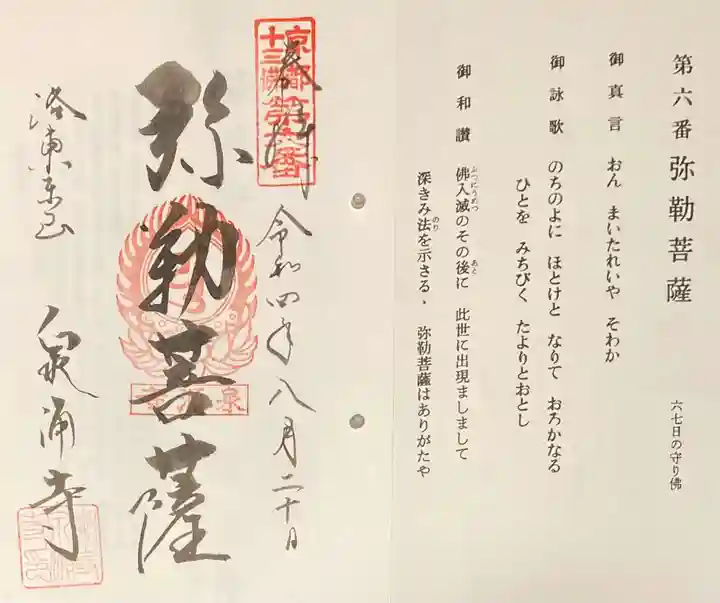 第六番 弥勒菩薩
六七日の守り佛
御真言 おん まいたれいや そわか
御詠歌 のちのよに ほとけと なりて おろかなる
ひとを みちびく たよりとおとし
御和讃 佛入滅のその後に 此世に出現ましまして
ぶつにうめつ
あと
深きみ法を示さる、 弥勒菩薩はありがたや
のり
京都
十三佛
第六番
奉拝
令和四年八月二十日
弥勒菩薩
泉涌寺
洛東東山
泉涌寺